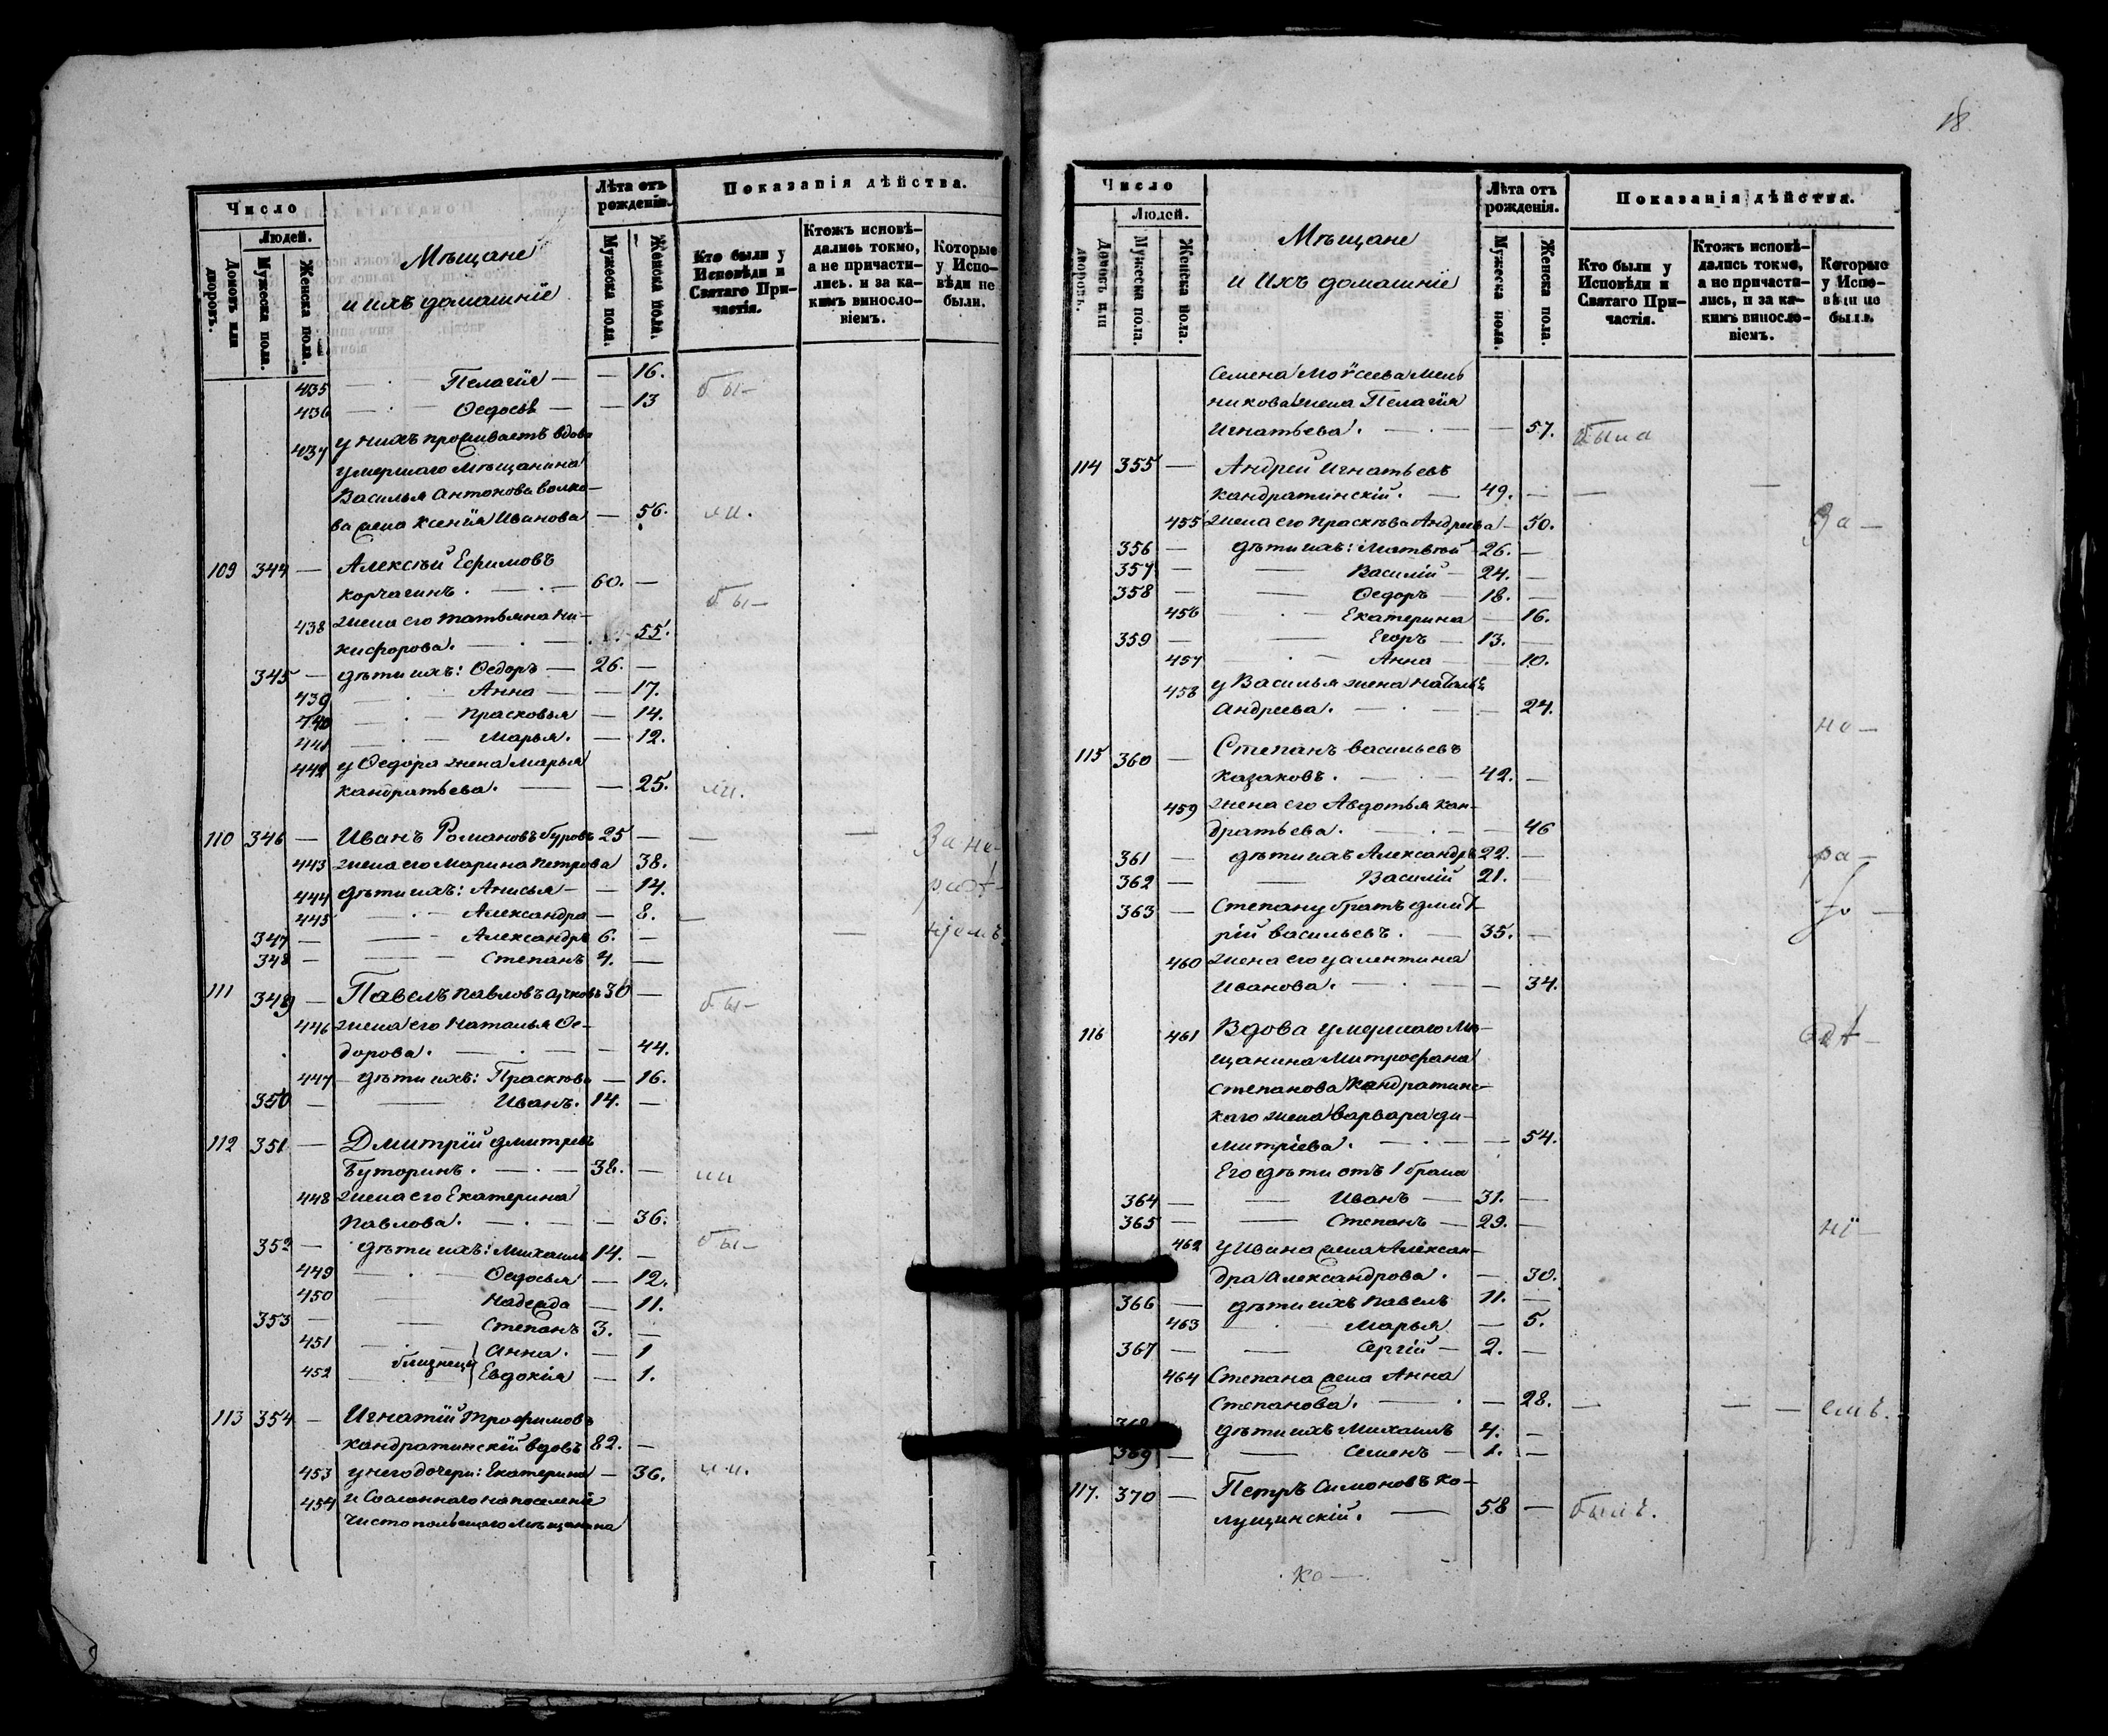 Число
Лѣта отъ рожденія.
Показанія дѣйства.
Людей.
Домовъ или дворовъ.
Мужеска пола.
Женска пола.
Мѣщане
и ихъ домашніе
Мужеска пола.
Женска пола.
Кто были у Исповѣди и Святаго Причастія.
Ктожъ исповѣдались токмо, а не причастились. и за какимъ винословіемъ.
Которые у Исповѣди не были.
435 — Пелагія — — 16. бы-
436 — Ѳедосья — — 13
437 у нихъ проживаетъ вдова
умершаго Мѣщанина
Василья Антонова Волко-
ва жена Ксенія Иванова — 56. ли.
109 344 — Алексѣй Ефимовъ
Корчагинъ. — 60. —
бы-
438 жена его Татьяна Ни-
кифорова. — 55.
345 — дѣти ихъ: Ѳедоръ — 26. —
439 — Анна — — 17.
440 — Прасковья — 14.
441 — Марья. — 12.
442 у Ѳедора жена Марья
Кандратьева. — — 25. ли.
110 346 — Иванъ Романовъ Буровъ 25 — — — За не-
443 жена его Марина Петрова 38.
444 дѣти ихъ: Анисья — — 14. рад-
445 — Александра — 8. —
347 — — Александръ 6. — — ніемъ.
348 — — Степанъ 4. —
111 349 — Павелъ Павловъ 30 — бы-
446 жена его Наталья Ѳе-
дорова. — — 44.
447 — дѣти ихъ: Прасковья — 16.
350 — — Иванъ. 14. —
112 351 — Дмитрій Дмитріевъ
Буторинъ. — 38. — ли
448 жена его Екатерина
Павлова. — — 36.
352 — дѣти ихъ: Михаилъ 14. — бы-
449 — Ѳедосья — 12.
450 — Надежда — 11.
353 — — Степанъ 3. —
451 — Анна. — 1
близнецы
452 — Евдокія — 1.
113 354 — Игнатій Трофимовъ
Кандратинскій вдовъ 82. —
453 у него дочери: Екатерина — 36. ли.
454 и Сосланнаго на поселеніе
Чистопольскаго Мѣщанина
18
Число
Лѣта отъ рожденія.
Показанія дѣйства.
Людей.
Домовъ или дворовъ.
Мужеска пола.
Женска пола.
Мѣщане
и ихъ домашніе
Мужеска пола.
Женска пола.
Кто были у Исповѣди и Святаго Причастія.
Ктожъ исповѣдались токмо, а не причастились, и за какимъ винословіемъ.
Которые у Исповѣди не были.
Семена Моѵсеева Мель
никова жена Пелагія
Игнатьева. — — 57. была
114 355 — Андрей Игнатьевъ
Кандратинскій. — 49. — — —
455 жена его Прасковья Андреева — 50. За-
356 — дѣти ихъ: Матвѣй 26. —
357 — — Василій — 24. —
358 — — Ѳедоръ — 18. —
456 — Екатерина — 16.
359 — — Егоръ — 13. —
457 — Анна — — 10.
458 у Василья жена Наталья
Андреева. — — 24.
не-
115 360 — Степанъ Васильевъ
Казаковъ. — 42. —
459 жена его Авдотья Кан-
дратьева. — — 46
361 — дѣти ихъ Александръ 22. — ра-
362 — — Василій 21. —
363 — Степану братъ Дмит-
рій Васильевъ. — 35. —
460 жена его
Иванова. — — 34.
116 461 Вдова умершаго Мѣ-
щанина Митрофана
Степанова Кандратинс-
каго жена Варвара Ди-
митріева. — — 54.
Его дѣти отъ 1 брака
364 — — Иванъ — 31. —
365 — — Степанъ — 29. — ні-
462 у Ивана жена Алексан-
дра Александрова. — 30.
366 — дѣти ихъ Павелъ 11. —
463 — Марья — 5.
367 — — Сергій — 2. —
464 Степана жена Анна
Степанова. — — 28. — — — емъ.
368 дѣти ихъ Михаилъ 4. —
369 — — Семенъ — 1. —
117. 370 — Петръ Симоновъ Ко-
лущинскій. — 58 — былъ.
Ко-